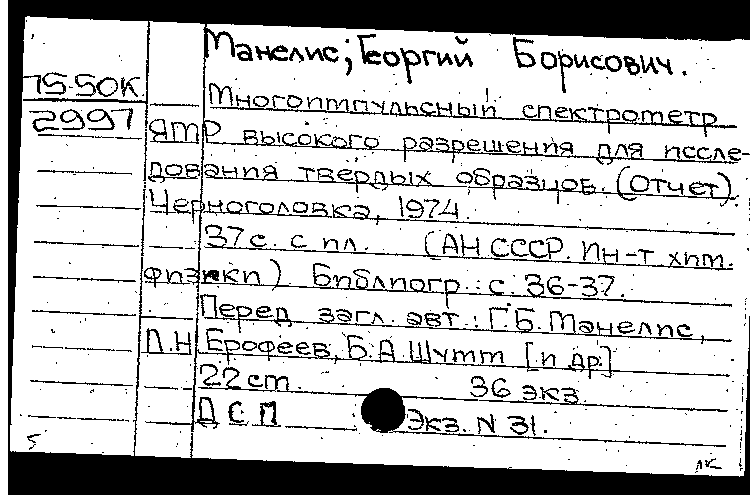 Манелис, Георгий Борисович.
75-50К
Многоимпульсный спектрометр
2997
ЯМР высокого разрешения для иссле-
дования твердых образцов. (Отчет).
Черноголовка, 1974.
37 с. с ил. (АН СССР. Ин-т хим.
физики). Библиогр.: с. 36-37.
Перед загл. авт.: Г.Б. Манелис,
Л.Н. Ерофеев, Б.А. Шумм [и др.]
22 ст. 36 экз.
ДСП Экз. N 31.
5